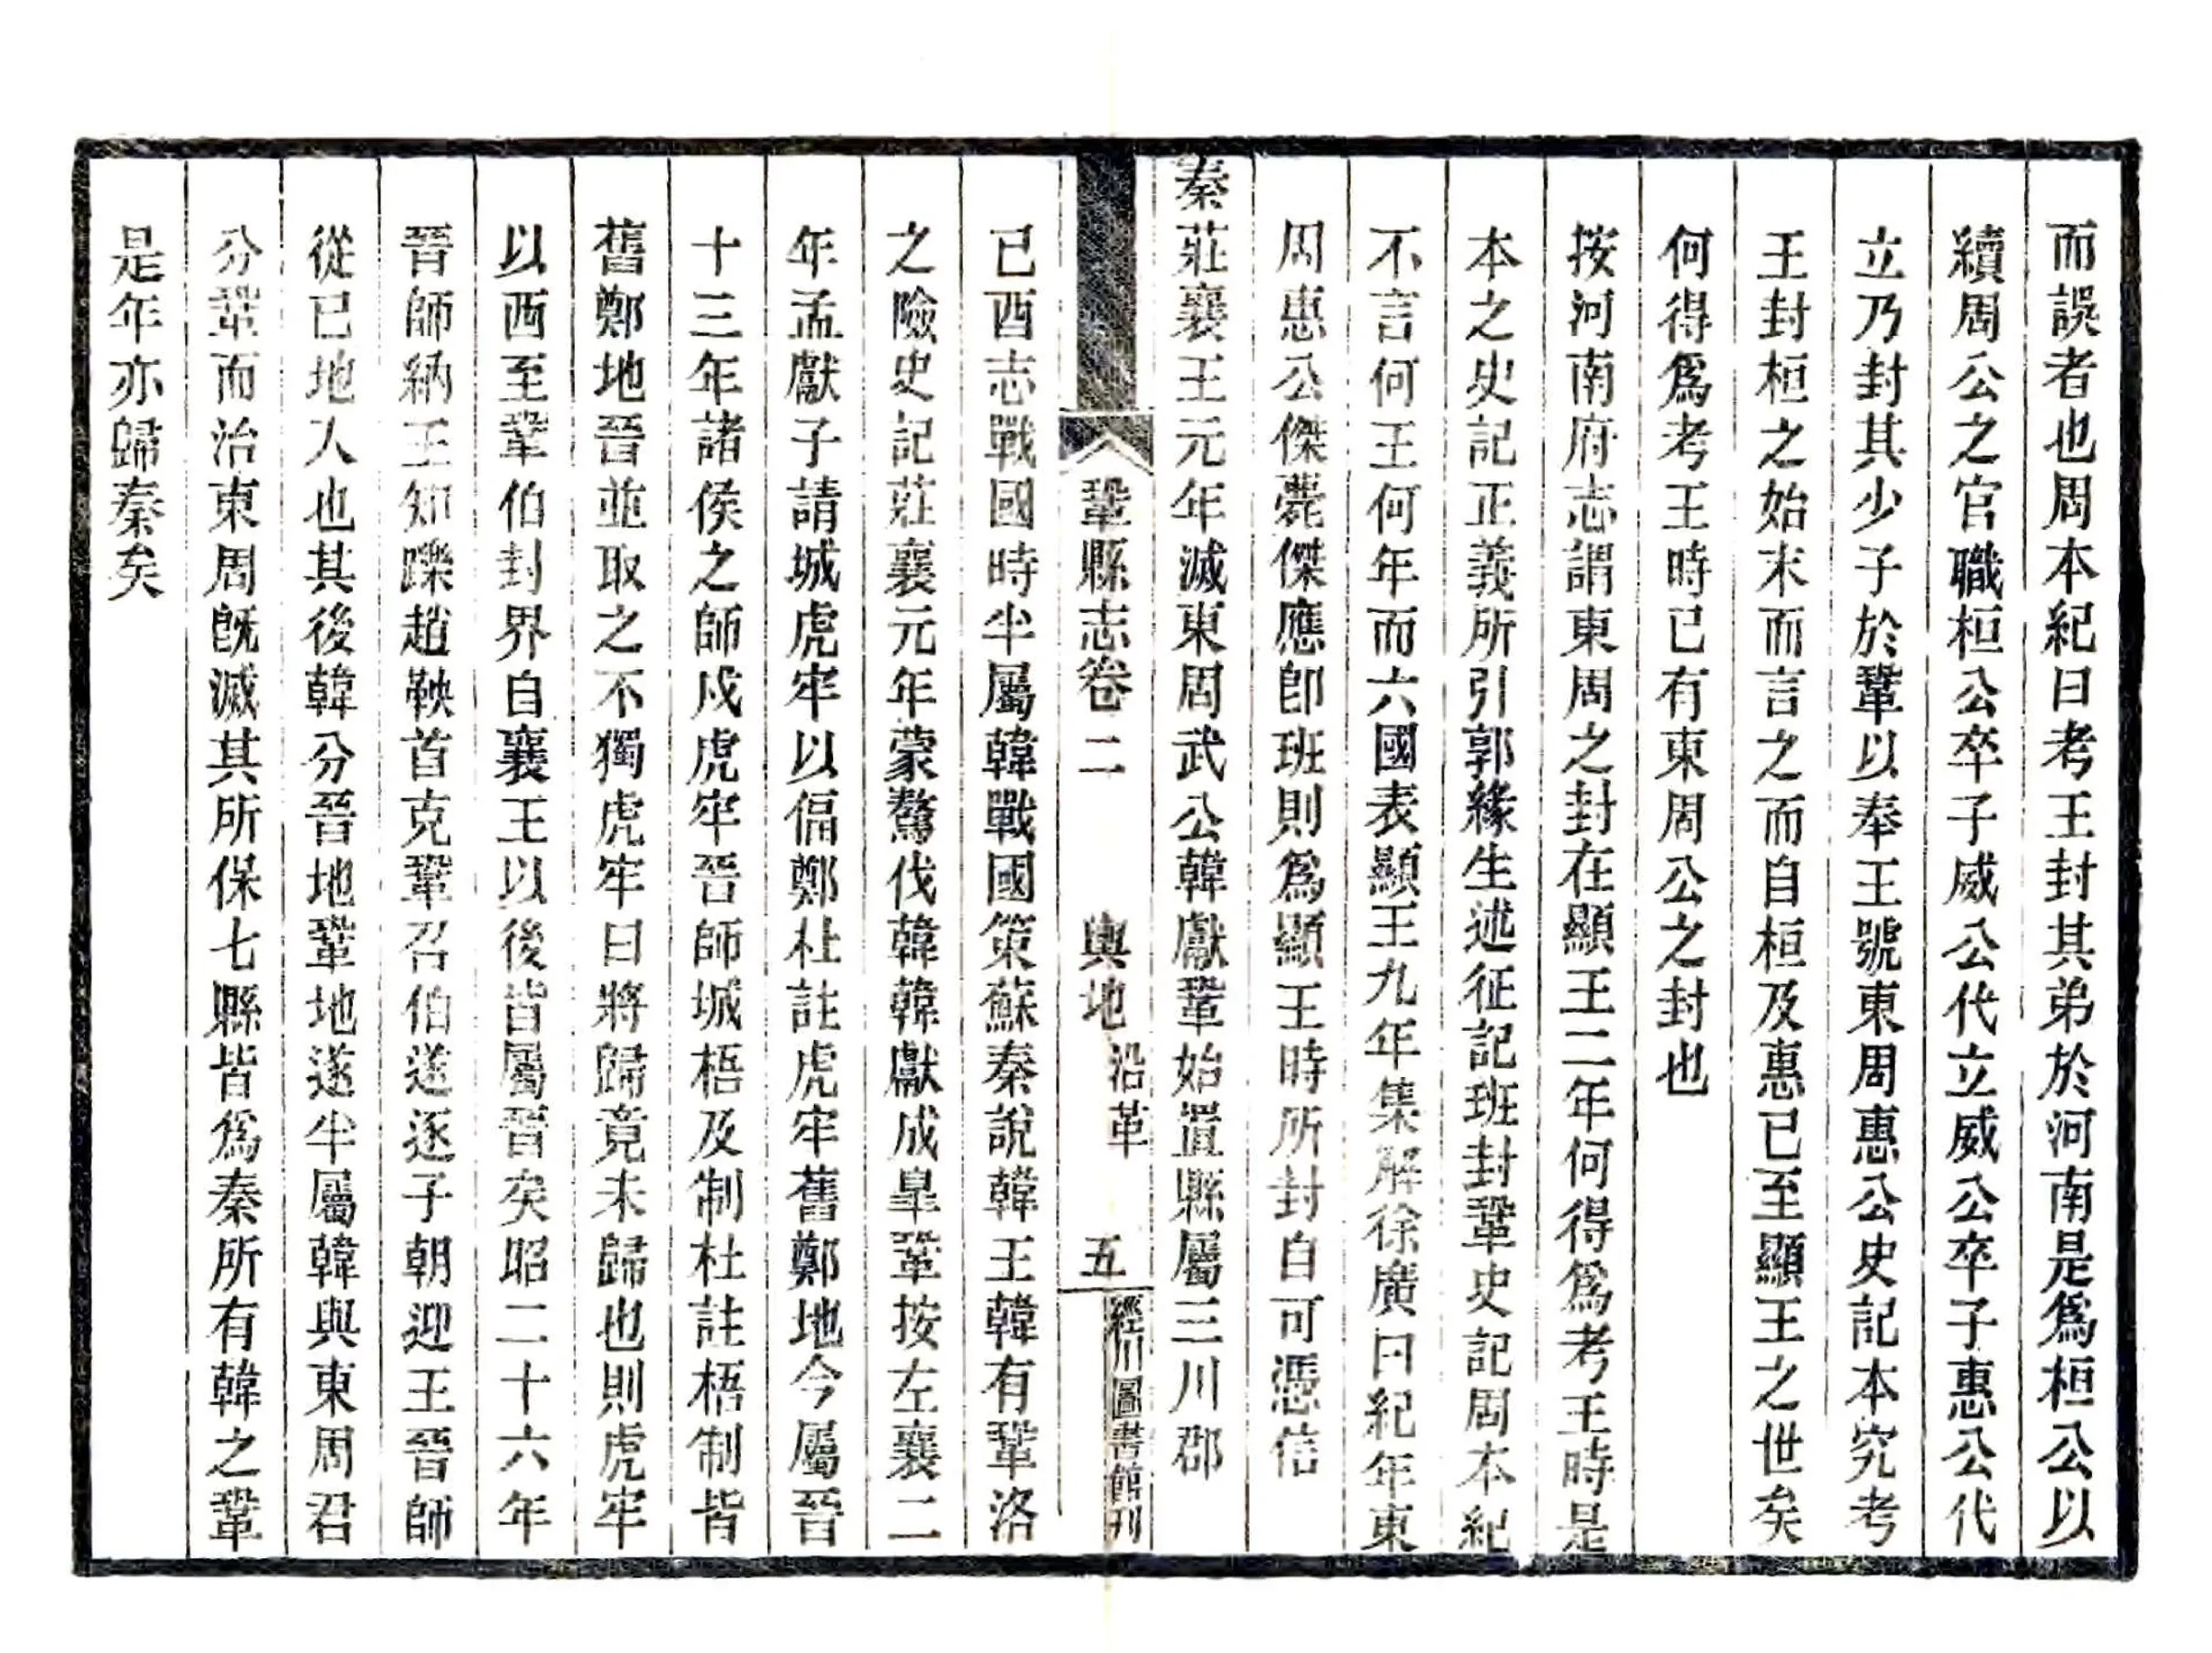 而誤者也周本紀曰考王封其弟於河南是爲桓公以
續周公之官職桓公卒子威公代立威公卒子惠公代
立乃封其少子於鞏以奉王號東周惠公史記本究考
王封桓之始末而言之而自桓及惠已至顯王之世矣
何得爲考王時已有東周公之封也
按河南府志謂東周之封在顯王二年何得爲考王時是
本之史記正義所引郭緣生述征記班封鞏史記周本紀
不言何王何年而六國表顯王九年集解徐廣曰紀年東
周惠公傑薨傑應卽班則爲顯王時所封自可憑信
秦莊襄王元年滅東周武公韓獻鞏始置縣屬三川郡
鞏縣志卷二 輿地 沿革 五 經川圖書館刊
已酉志戰國時半屬韓戰國策蘇秦說韓王韓有鞏洛
之險史記莊襄元年蒙驁伐韓韓獻成臯鞏按左襄二
年孟獻子請城虎牢以偪鄭杜註虎牢舊鄭地今屬晉
十三年諸侯之師戍虎牢晉師城梧及制杜註梧制皆
舊鄭地晉並取之不獨虎牢曰將歸竟未歸也則虎牢
以西至鞏伯封界自襄王以後皆屬晉矣昭二十六年
晉師納王知躒趙鞅首克鞏召伯遂逐子朝迎王晉師
從已地人也其後韓分晉地鞏地遂半屬韓與東周君
分鞏而治東周旣滅其所保七縣皆爲秦所有韓之鞏
是年亦歸秦矣